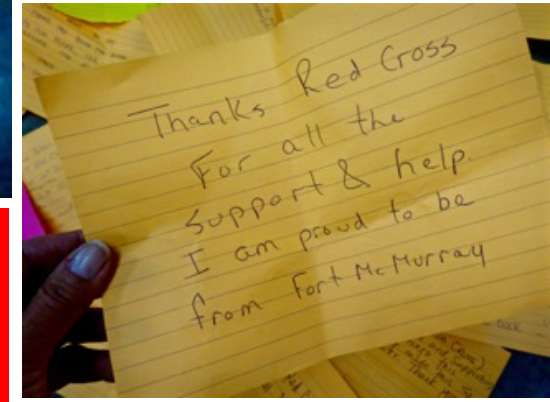 Thanks Red Cross
For all the
support & help.
I am proud to be
from Fort McMurray